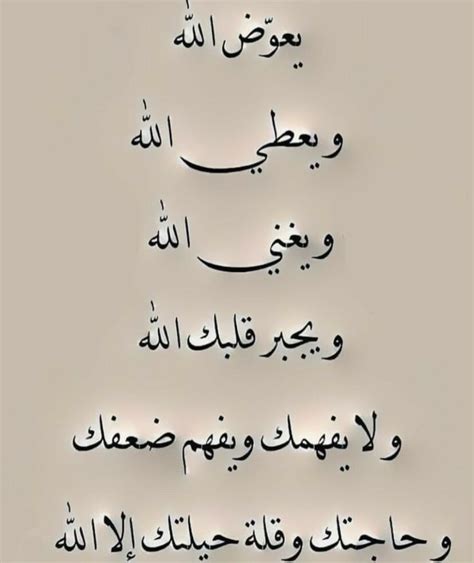 يعوّض الله
ويعطي الله
ويغني الله
ويجبر قلبك الله
ولا يفهمك ويفهم ضعفك
وحاجتك وقلة حيلتك إلا الله